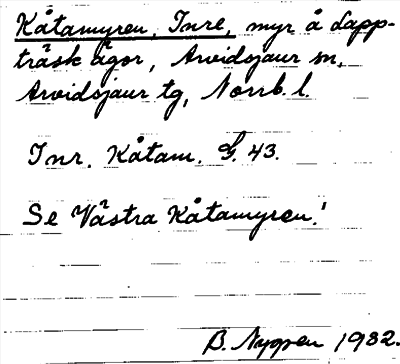 Kåtamyren, Inre, myr å Lapp-
träsk ägor, Arvidsjaur sn,
Arvidsjaur tg, Norrb. l.
Inr. Kåtam. G. 43.
Se Västra Kåtamyren!
B. Nygren 1932.